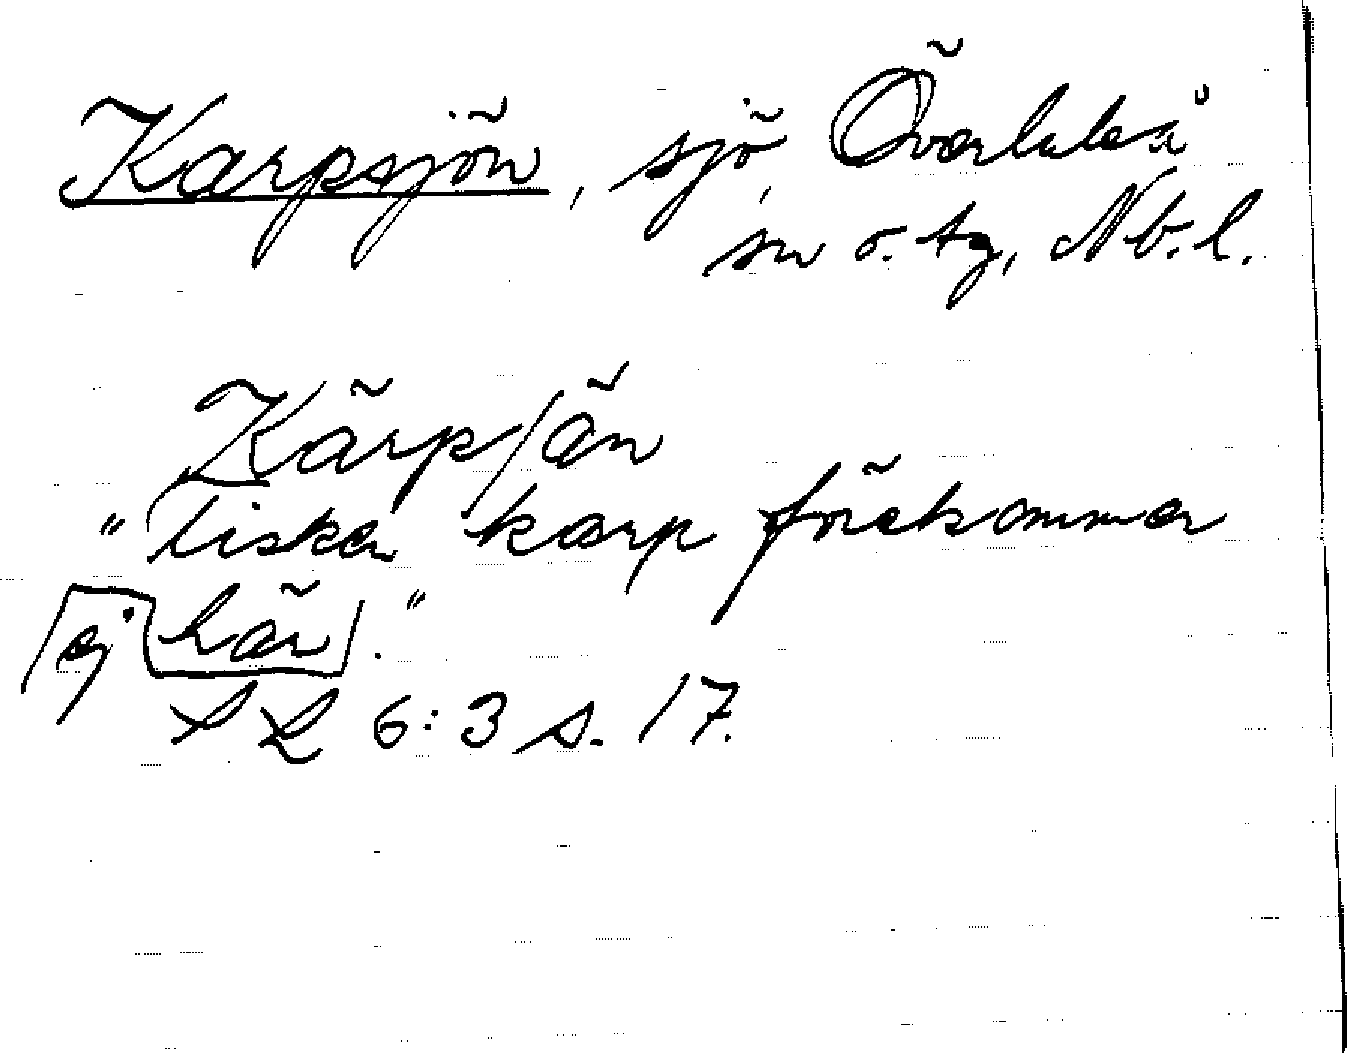 Karpsjön, sjö, Överluleå
sn o. tg, Nb. l.
Kārp/än
"fisken karp förekommer
ej här."
SL 6:3 s. 17.